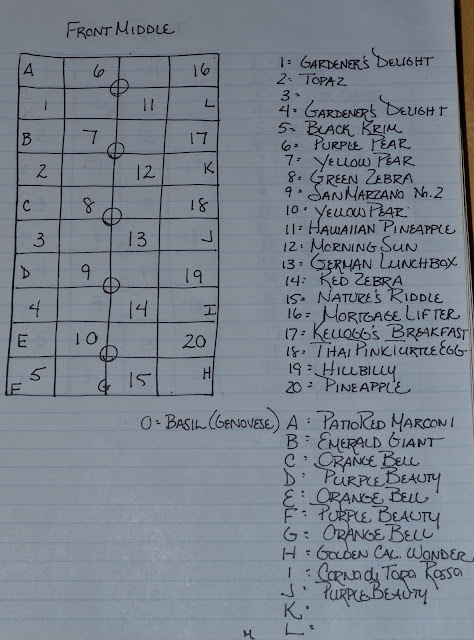 FRONT MIDDLE
A 6 16
1 11 L
B 7 17
2 12 K
C 8 18
3 13 J
D 9 19
4 14 I
E 10 20
F 5 G 15 H
1= GARDENER'S DELIGHT
2= TOPAZ
3=
4= GARDENER'S DELIGHT
5= BLACK KRIM
6= PURPLE PEAR
7= YELLOW PEAR
8= GREEN ZEBRA
9= SAN MARZANO NO. 2
10= YELLOW PEAR
11= HAWAIIAN PINEAPPLE
12= MORNING SUN
13= GERMAN LUNCHBOX
14= RED ZEBRA
15= NATURE'S RIDDLE
16= MORTGAGE LIFTER
17= KELLOGG'S BREAKFAST
18= THAI PINK TURTLE EGG
19= HILLBILLY
20= PINEAPPLE
O = BASIL (GENOVESE)
A: PATIO RED MARCONI
B: EMERALD GIANT
C: ORANGE BELL
D: PURPLE BEAUTY
E: ORANGE BELL
F: PURPLE BEAUTY
G: ORANGE BELL
H: GOLDEN CAL. WONDER
I: CORNO di TORA ROSSA
J: PURPLE BEAUTY
K:
L:
M